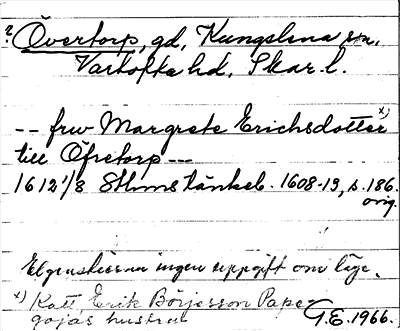 ? Övertorp, gd, Kungslena sn,
Vartofta hd, Skar. l.
-- fru Margrete Erichsdotter x)
till Öfretorp ---
1612 1/8 Sthms tänkeb. 1608-13, s. 186.
orig.
ingen uppgift om läge.
x) Katt, Erik Börjesson Papes
gojas hustru
G.E. 1966.